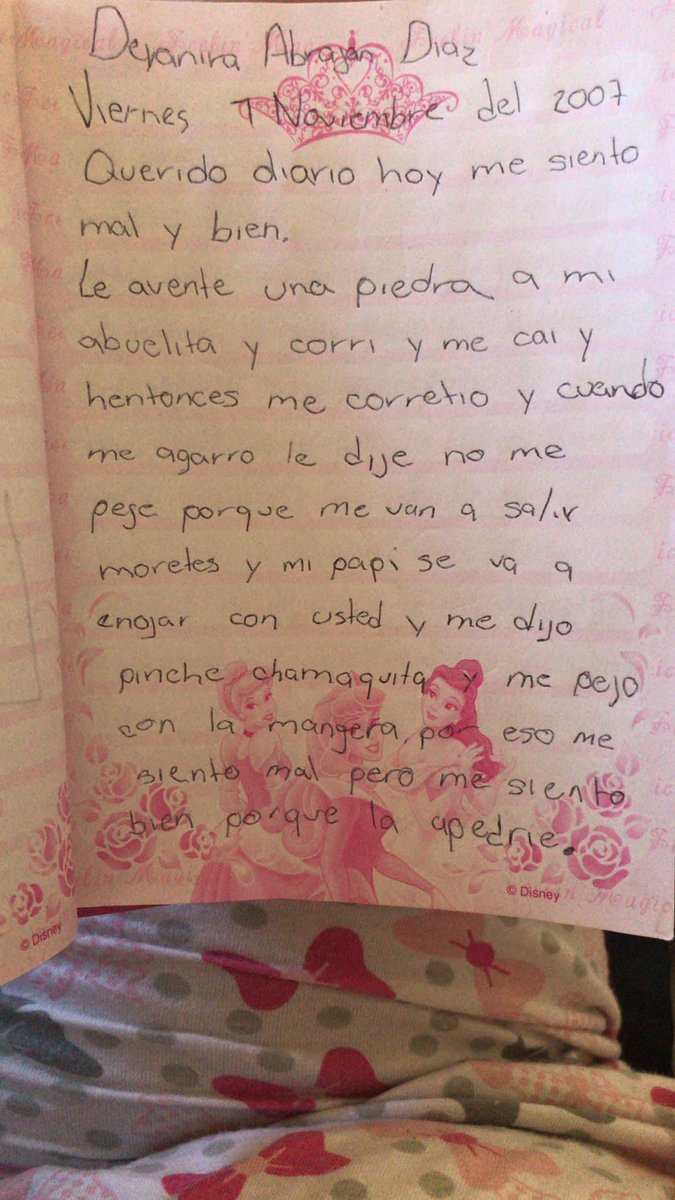 Deyanira Abrajan Diaz
Viernes 7 Noviembre del 2007
Querido diario hoy me siento
mal y bien.
Le avente una piedra a mi
abuelita y corri y me cai y
hentonces me corretio y cuando
me agarro le dije no me
pege porque me van a salir
moretes y mi papi se va a
enojar con usted y me dijo
pinche chamaquita y me pejo
con la mangera. por eso me
siento mal pero me siento
bien porque la apedrie.
© Disney
© Disney